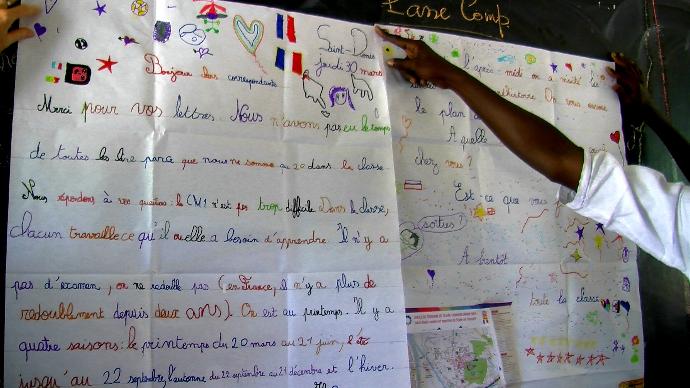 Classe Comp
Saint-Denis
jeudi 30 mars
Bonjour chers correspondants
Merci pour vos lettres. Nous n'avons pas eu le temps
de toutes les lire parce que nous ne somme qu'à 20 dans la classe
Nous répondons à vos questions : le CM1 n'est pas trop difficile. Dans la classe,
chacun travaille ce qu'il ou elle a besoin d'apprendre. Il n'y a
pas d'examen, on ne redouble pas (en France, il n'y a plus de
redoublement depuis deux ans). On est au printemps. Il y a
quatre saisons : le printemps du 20 mars au 21 juin, l'été
jusqu'au 22 septembre, l'automne du 22 septembre au 21 décembre et l'hiver.
l'après-midi on a visité
préhistoire. On vous envoie
le plan
A quelle
chez vous ?
Est-ce que vous
sorties ?
A bientôt
toute la classe